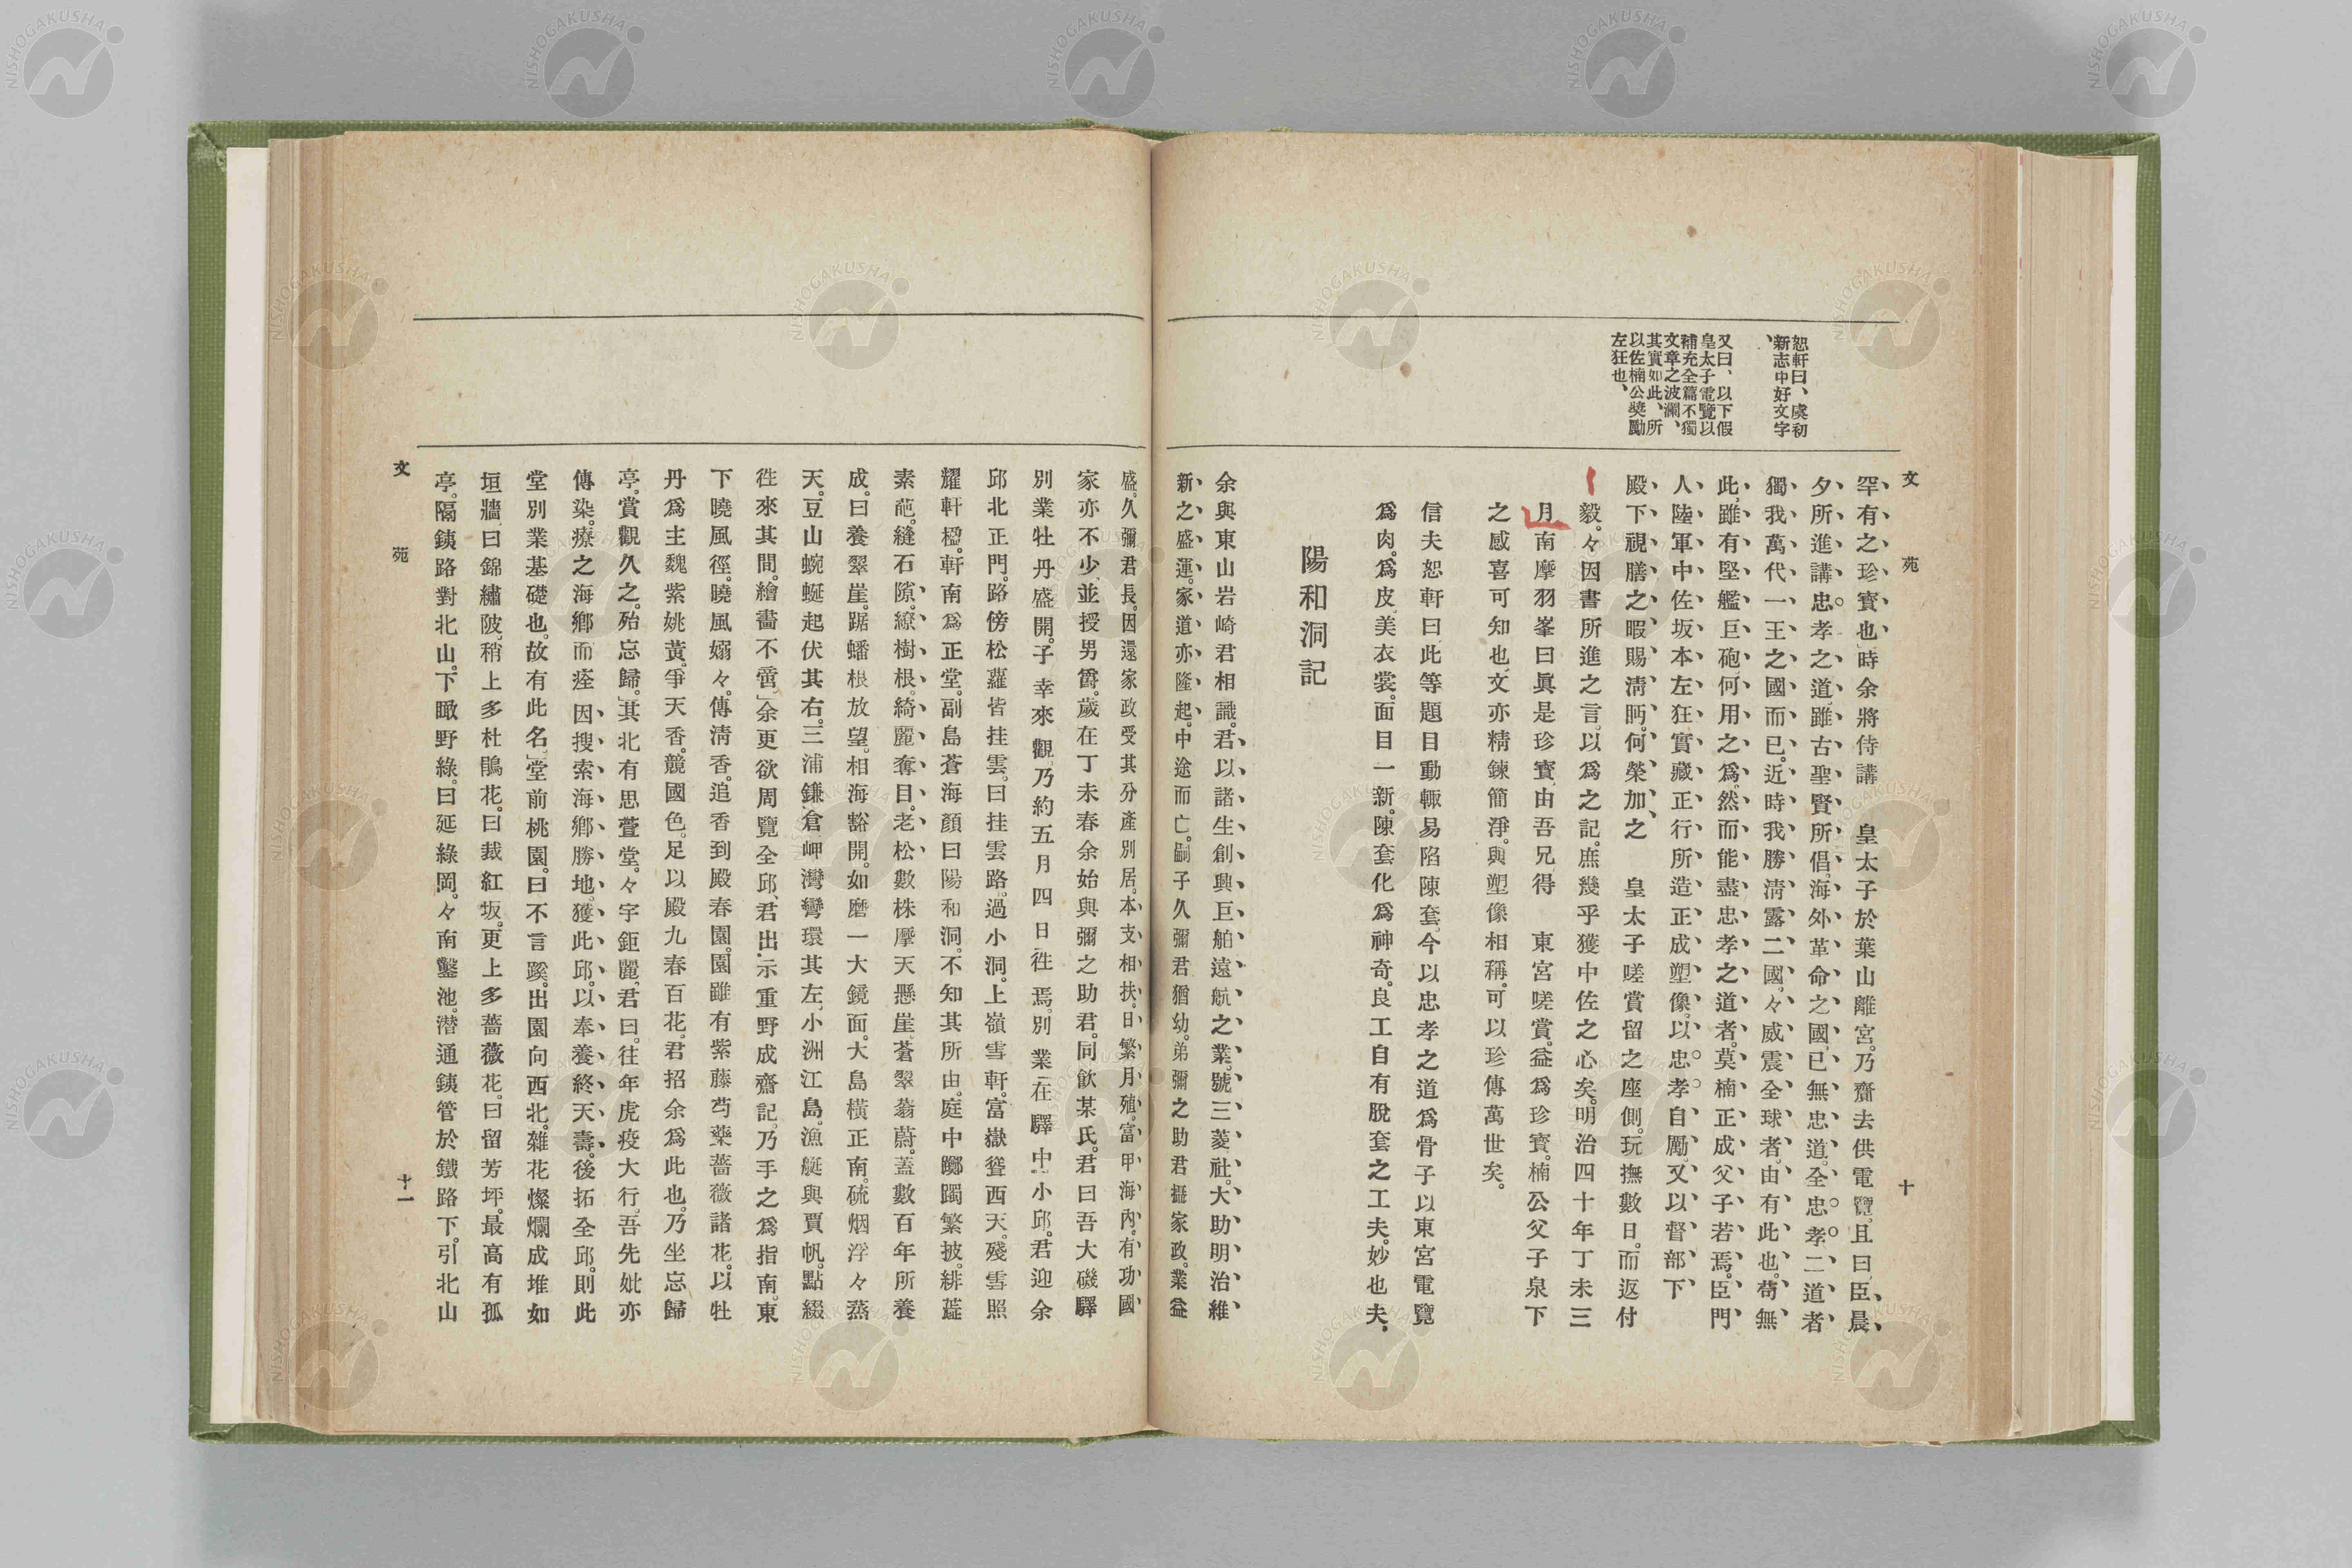 文苑
十
恕軒曰、虞初
新志中好文字
、
又曰、以下假
皇太子電覽以
補充全篇不獨
文章之波瀾、
其實如此、所
以佐楠公奬勵
左狂也、
罕有之珍寳也、時余將侍講　皇太子於葉山離宮。乃齎去供電覽。且曰、臣晨
夕所進講。忠孝之道、雖古聖賢所倡、海外革命之國、已無忠道。全忠孝二道者
獨我萬代一王之國而已。近時我勝淸露二國、々威震全球者、由有此也。苟無
此、雖有堅艦巨砲、何用之爲。然而能盡忠孝之道者。莫楠正成父子若焉。臣門
人陸軍中佐坂本左狂實藏正行所造正成塑像。以忠孝自勵、又以督部下
殿下視膳之暇賜淸眄。何榮加之　皇太子嗟賞留之座側。玩撫數日。而返付
毅。々因書所進之言。以爲之記。庶幾乎獲中佐之心矣。明治四十年丁未三
月南摩羽峯曰眞是珍寳、由吾兄得　東宮嗟賞。益爲珍寳。楠公父子泉下
之感喜可知也、文亦精鍊簡淨。與塑像相稱。可以珍傳萬世矣。
信夫恕軒曰、此等題目動輙易陷陳套、今以忠孝之道爲骨子以東宮電覽
爲肉。爲皮、美衣裳。面目一新。陳套化爲神奇。良工自有脫套之工夫。妙也夫。
陽和洞記
余與東山岩崎君相識。君以諸生創興巨舶遠航之業。號三菱社。大助明治維
新之盛運。家道亦隆起。中途而亡。嗣子久彌君猶幼。弟彌之助君攝家政。業益
盛。久彌君長。因還家政受其分產別居。本支相扶。日繁月殖。富甲海內。有功國
家亦不少、並授男爵。歲在丁未春余始與彌之助君。同飮某氏。君曰吾大磯驛
別業牡丹盛開。子幸來觀、乃約五月四日往焉。別業在驛中小邱。君迎余
邱北正門。路傍松蘿皆挂雲。曰挂雲路。過小洞。上嶺雪軒。富嶽聳西天。殘雪照
耀軒楹。軒南爲正堂。副島蒼海顏曰陽和洞。不知其所由。庭中躑躅繁披。緋葩
素葩。縫石隙。繚樹根。綺麗奪目。老松數株摩天懸崖。蒼翠蓊蔚。蓋數百年所養
成。曰養翠崖。踞蟠根放望。相海豁開。如磨一大鏡面。大島橫正南。硫烟浮々蒸
天。豆山蜿蜒起伏其右。三浦鎌倉岬灣彎環其左、小洲江島。漁艇與賈帆。點綴
往來其間。繪畵不啻、余更欲周覽全邱、君出示重野成齋記。乃手之爲指南。東
下曉風徑。曉風嫋々。傳淸香。追香到殿春園。園雖有紫藤芍藥薔薇諸花。以牡
丹爲主魏紫姚黃。爭天香。競國色。足以殿九春百花。君招余爲此也。乃坐忘歸
亭。賞觀久之。殆忘歸。其北有思萱堂。々宇鉅麗、君曰。往年虎疫大行。吾先妣亦
傳染。療之海鄕、而痊、因搜索海鄕勝地。獲此邱。以奉養終天壽。後拓全邱。則此
堂別業基礎也。故有此名、堂前桃園。曰不言蹊。出園向西北。雜花燦爛成堆如
垣牆、曰錦繡陂、稍上多杜鵑花。曰裁紅坂。更上多薔薇花。曰留芳坪。最高有孤
亭。隔銕路對北山。下瞰野綠。曰延綠岡。々南鑿池。潛通銕管於鐵路下。引北山
文苑
十一